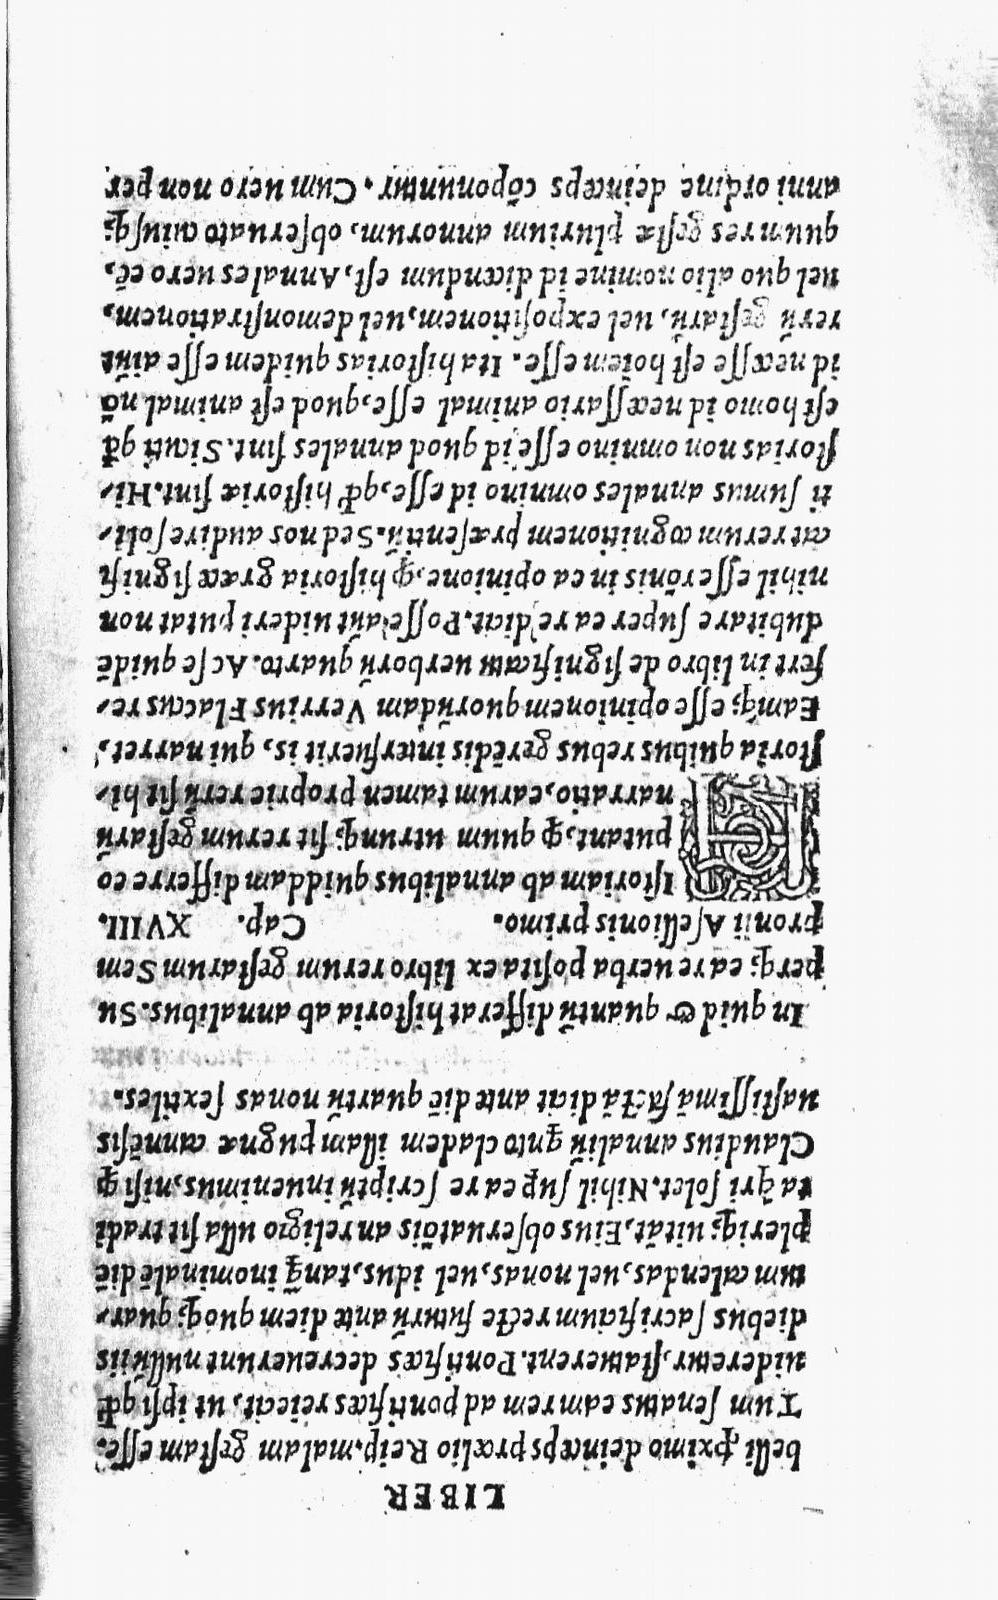 LIBER
belli ꝓximo deinceps prælio Reip. malam gestam esse.
Tum senatus eam rem ad pontifices reiecit, ut ipsi qđ
uideretur, statuerent. Pontifices decreuerunt nullū iis
diebus sacrificium recte futurū ante diem quoq; quar-
tum calendas, uel nonas, uel idus, tanq̄ inominalē diē
pleriq; uitāt, Eius obseruatiōis an religio ulla sit tradi
ta q̄ri solet. Nihil suꝑ ea re scriptū inuenimus, nisi ꝙ
Claudius annaliū qnto cladem illam pugnæ cannēsis
uastissimā factā dicit ante diē quartū nonas sextiles.
In quid & quantū differat historia ab annalibus. Su
perq; ea re uerba posita ex libro rerum gestarum Sem
pronii Asellionis primo. Cap. XVIII.
HIstoriam ab annalibus quiddam differre eo
putant, ꝙ quum utrunq; sit rerum gestarū
narratio, earum tamen proprie rerū sit hi-
storia quibus rebus gerēdis interfuerit is, qui narret,
Eamq; esse opinionem quorūdam Verrius Flaccus re-
fert in libro de significatu uerborū quarto. Ac se quidē
dubitare super ea re dicit. Posse aūt uideri putat non
nihil esse rōnis in ea opinione, ꝙ historia græce signifi
cat rerum cognitionem præsentiū. Sed nos audire soli-
ti sumus annales omnino id esse, qđ historiæ sint. Hi-
storias non omnino esse id quod annales sint. Sicuti qđ
est homo id necessario animal esse, quod est animal nō
id necesse est hoīem esse. Ita historias quidem esse aiūt
rerū gestarū, uel expositionem, uel demonstrationem,
uel quo alio nomine id dicendum est, Annales uero eē,
quum res gestæ plurium annorum, obseruato cuiusq;
anni ordine deinceps cōponuntur. Cum uero non per